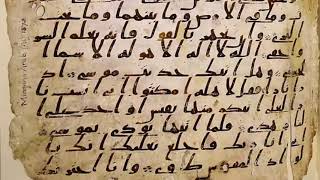 وما في الارض وما بينهما وما تحت
الثرى وان تجهر بالقول فانه يعلم السر
واخفى الله لا اله الا هو له الاسما ا
لحسنى وهل اتيك حديث موسى اذ
را نارا فقل لاهله امكثوا اني انست نا
را لعلي اتيكم منها بقبس او اجد على ا
لنار هدى فلما اتيها نودي يموسى
اني انا ربك فاخلع نعليك انك با
لواد المقدس طوى وانا اختر
Mingana Arab